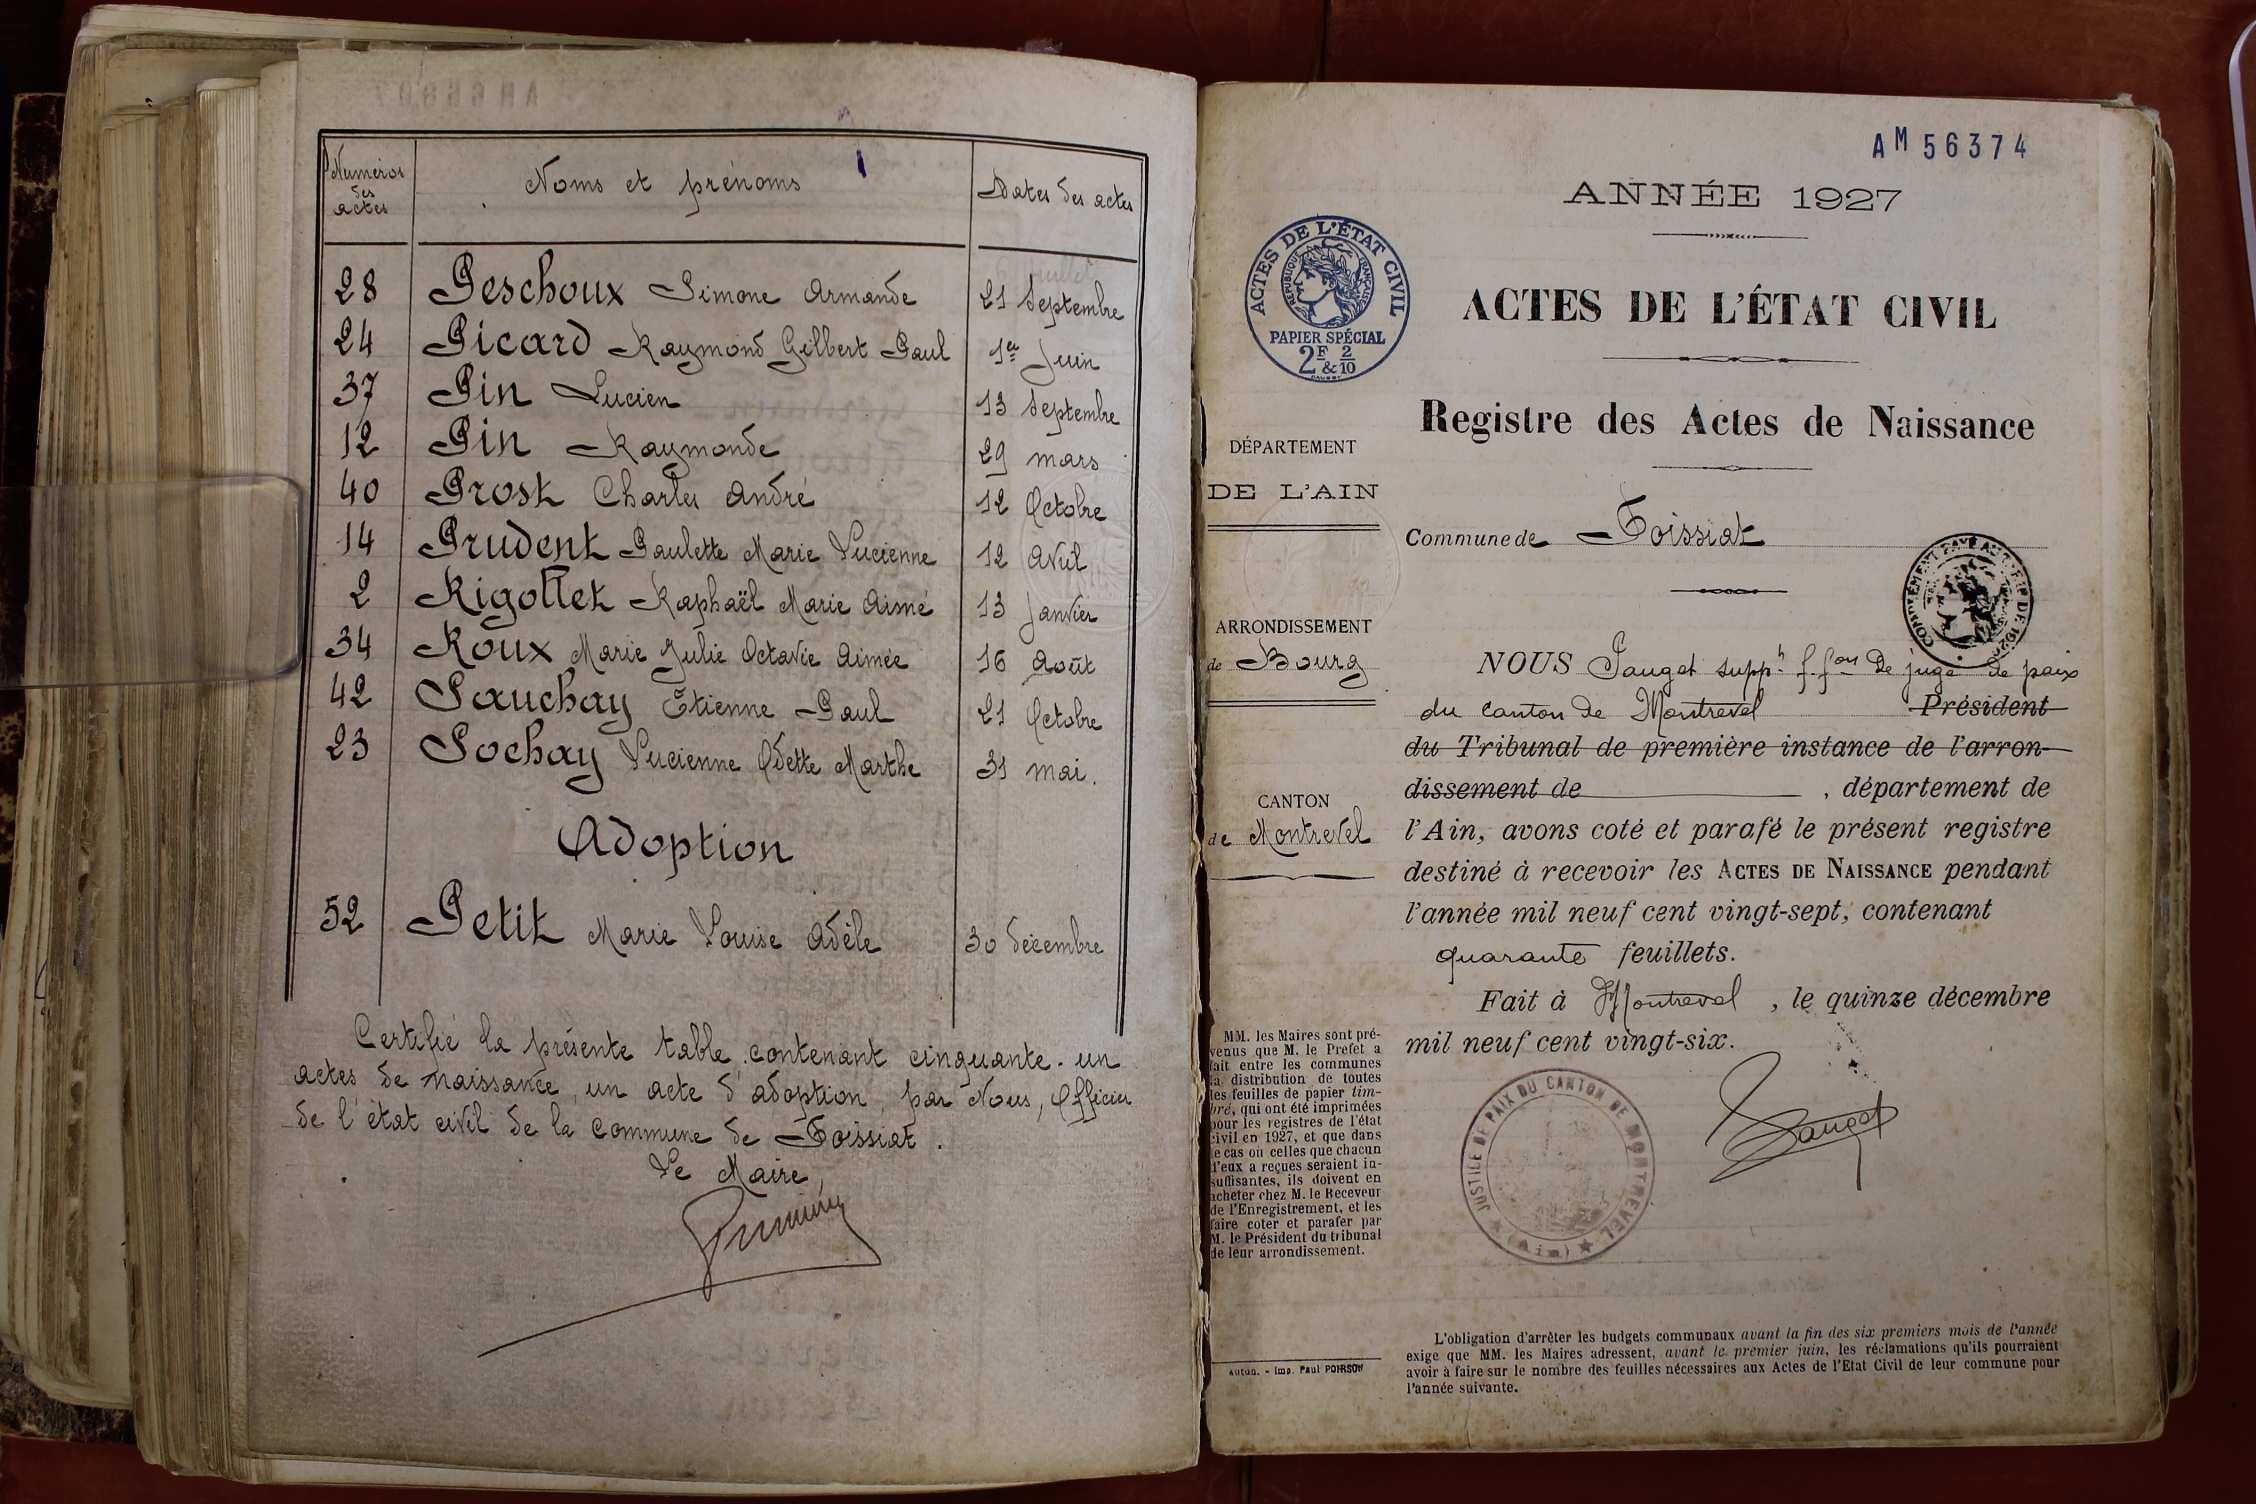 Numéros
des
actes
Noms et prénoms
Dates des actes
28 Peschoux Simone Armande 21 Septembre
24 Picard Raymond Gilbert Paul 1er Juin
37 Pin Lucien 13 Septembre
12 Pin Raymonde 29 mars
40 Prost Charles André 12 Octobre
14 Prudent Paulette Marie Lucienne 12 Avril
2 Rigollet Raphaël Marie Aimé 13 Janvier
34 Roux Marie Julie Octavie Aimée 16 Août
42 Sauchay Etienne Paul 21 Octobre
23 Sochay Lucienne Odette Marthe 31 mai.
Adoption
52 Petit Marie Louise Adèle 30 décembre
Certifié la présente table contenant cinquante-un
actes de naissance, un acte d'adoption, par Nous, Officier
de l'état civil de la commune de Foissiat.
Le Maire,
AM 56374
ANNÉE 1927
ACTES DE L'ÉTAT CIVIL
RÉPUBLIQUE FRANÇAISE
PAPIER SPÉCIAL
2F & 2/10
ACTES DE L'ÉTAT CIVIL
Registre des Actes de Naissance
DÉPARTEMENT
DE L'AIN
Commune de Foissiat
ARRONDISSEMENT
de Bourg
CANTON
de Montrevel
NOUS Pauget suppt f. fon de juge de paix
du canton de Montrevel Président
du Tribunal de première instance de l'arron-
dissement de , département de
l'Ain, avons coté et parafé le présent registre
destiné à recevoir les ACTES DE NAISSANCE pendant
l'année mil neuf cent vingt-sept, contenant
quarante feuillets.
Fait à Montrevel, le quinze décembre
mil neuf cent vingt-six.
Pauget
JUSTICE DE PAIX DU CANTON DE MONTREVEL
(Ain)
MM. les Maires sont pré-
venus que M. le Prefet a
fait entre les communes
la distribution de toutes
les feuilles de papier tim-
bré, qui ont été imprimées
pour les registres de l'état
civil en 1927, et que dans
le cas où celles que chacun
d'eux a reçues seraient in-
suffisantes, ils doivent en
acheter chez M. le Receveur
de l'Enregistrement, et les
faire coter et parafer par
M. le Président du tribunal
de leur arrondissement.
Autun. - Imp. Paul POIRSON
L'obligation d'arrêter les budgets communaux avant la fin des six premiers mois de l'année
exige que MM. les Maires adressent, avant le premier juin, les réclamations qu'ils pourraient
avoir à faire sur le nombre des feuilles nécessaires aux Actes de l'Etat Civil de leur commune pour
l'année suivante.